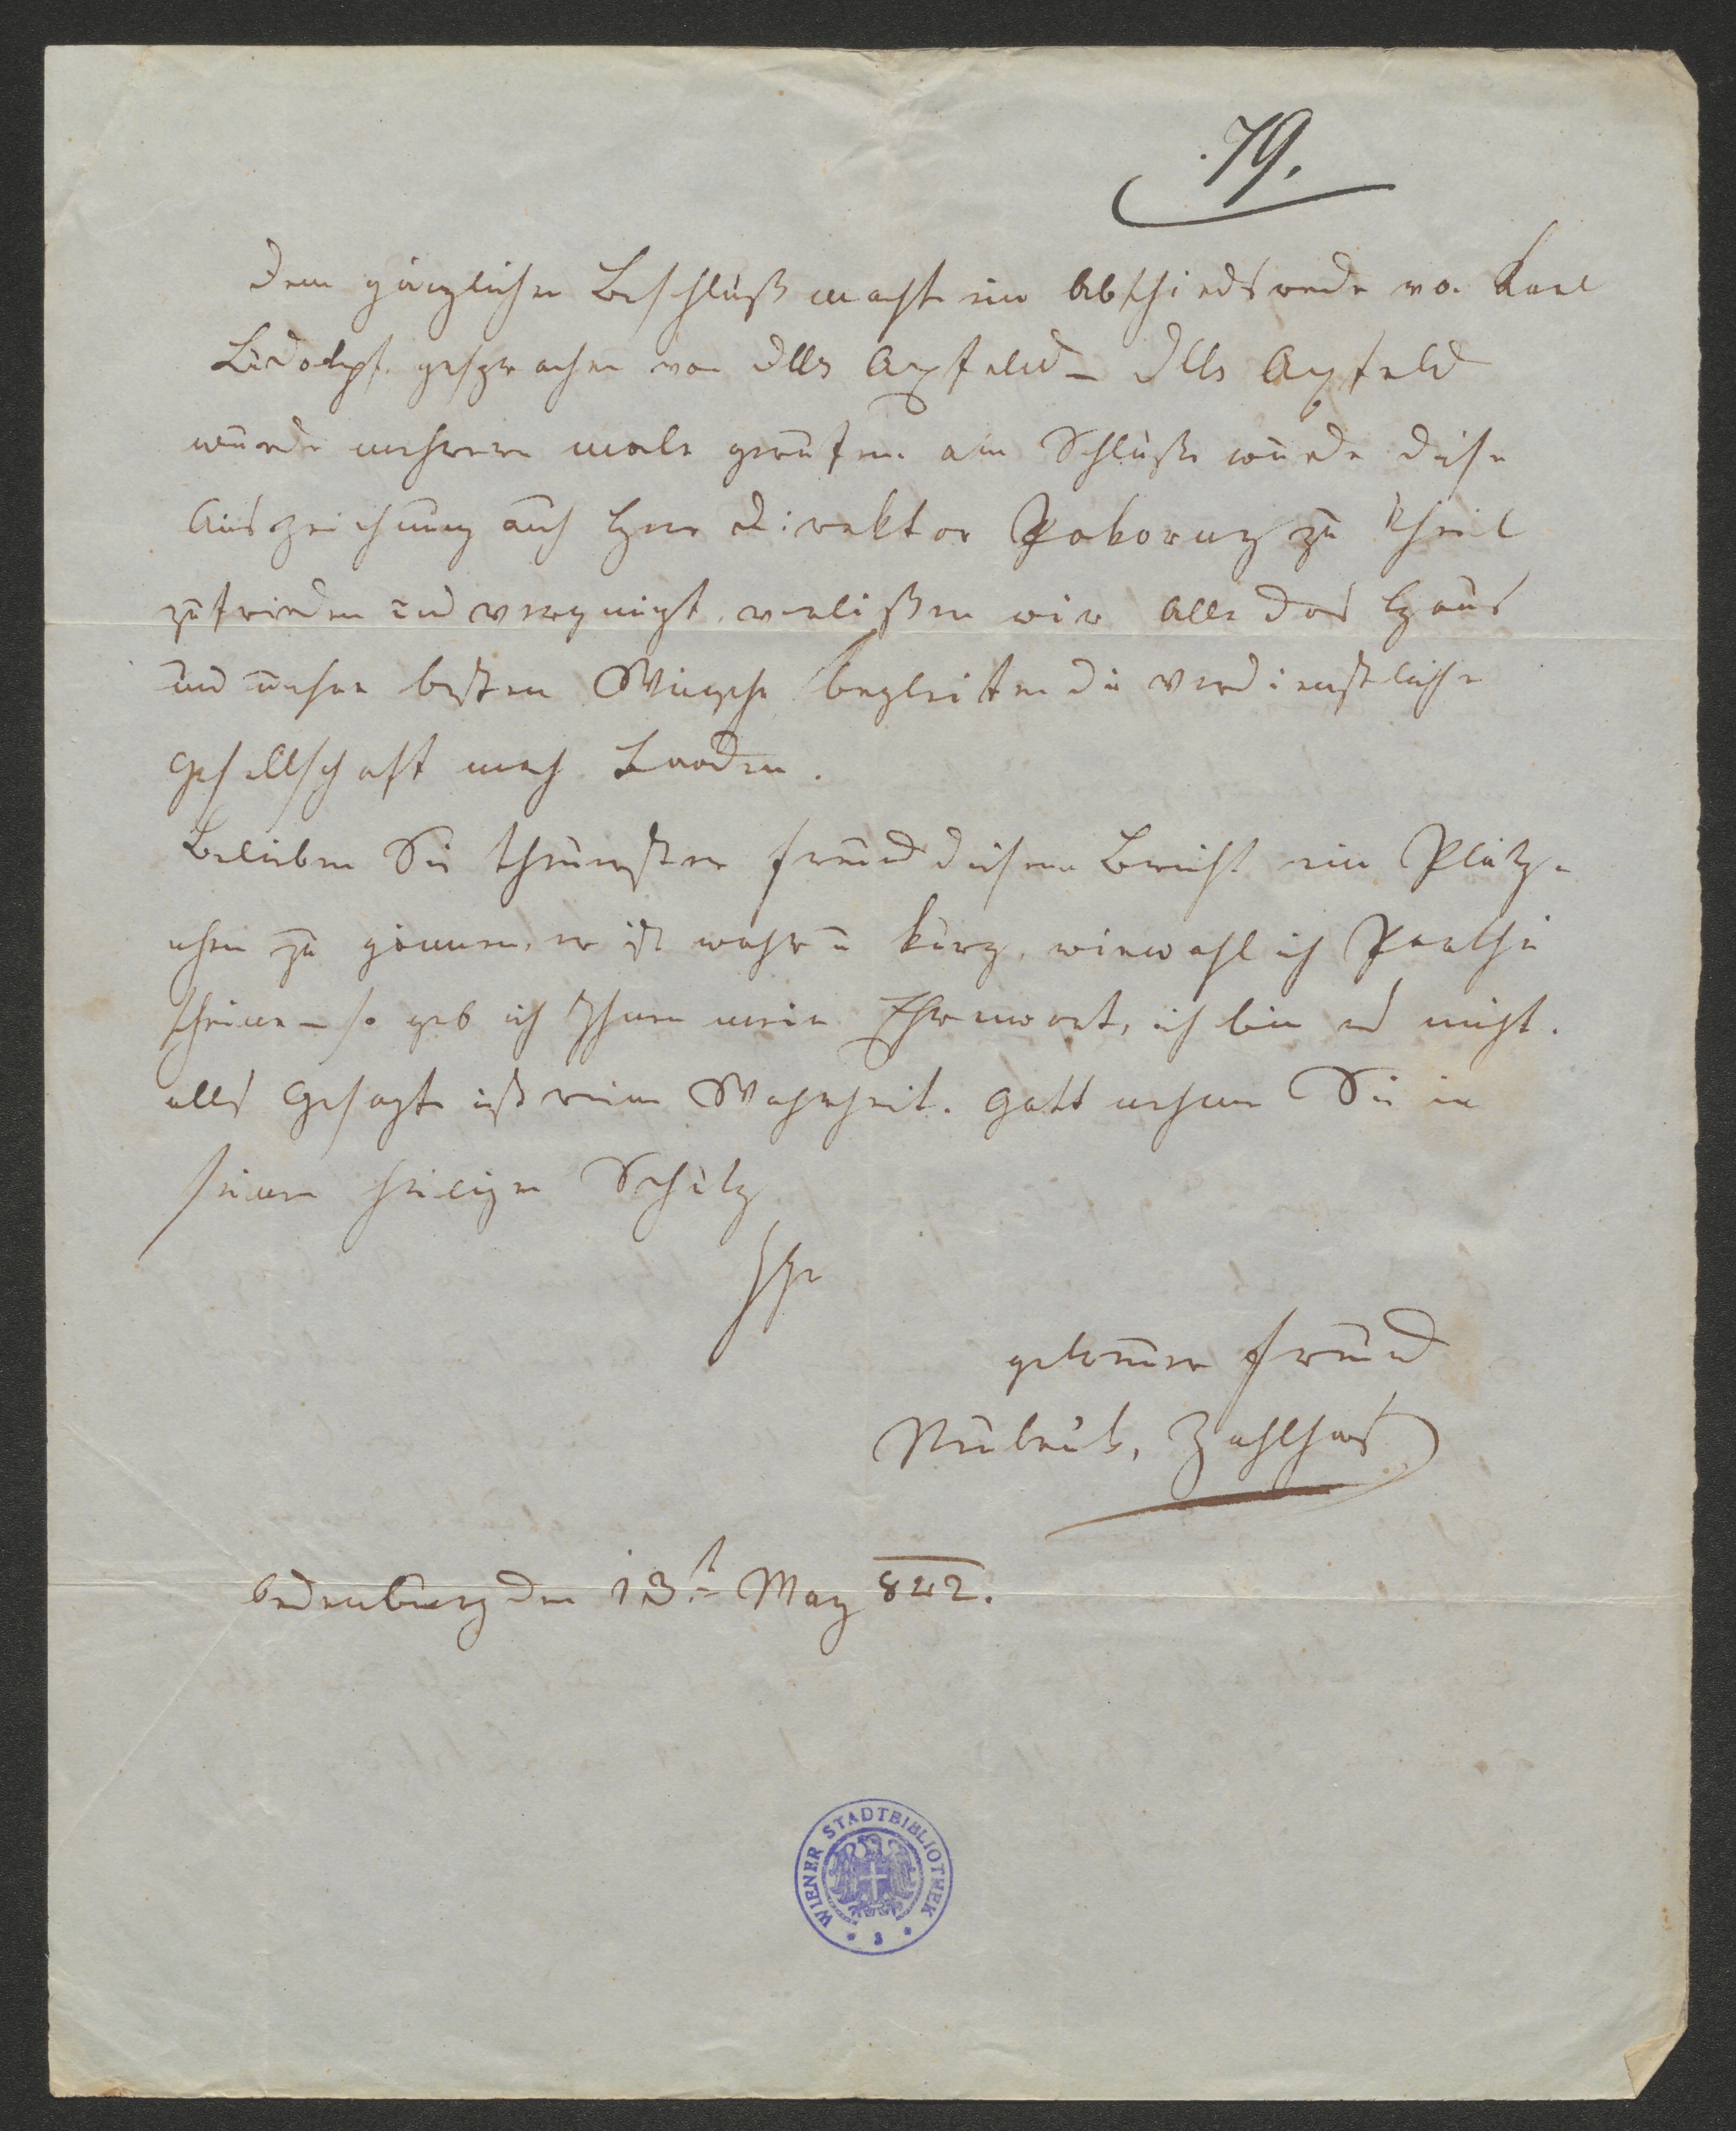 79.
Dem gänzlichen Beschluß machte eine Abschiedsrede von Karl
Ludolph. gesprochen von Dlle Apfeld – Dlle Apfeld
wurde mehrere male gerufen. am Schluße wurde diese
Auszeichnung auch Herr Direktor Pokorny zu Theil
zufrieden und vergnügt, verließen wir Alle das Haus
und unsere besten Wünsche begleiten die verdienstliche
Gesellschaft nach Baaden.
Belieben Sie theuerster Freund diesem Bericht ein Plätz=
chen zu gönnen, er ist wahr u kurz, wiewohl ich Parthei
scheine – so geb ich Ihnen mein Ehrenwort, ich bin es nicht.
alles Gesagte ist reine Wahrheit. Gott nehme Sie in
seinen heiligen Schutz
Ihr
getreuer Freund
Zahlhas
Oedenburg den 13t May 842.
WIENER STADTBIBLIOTHEK